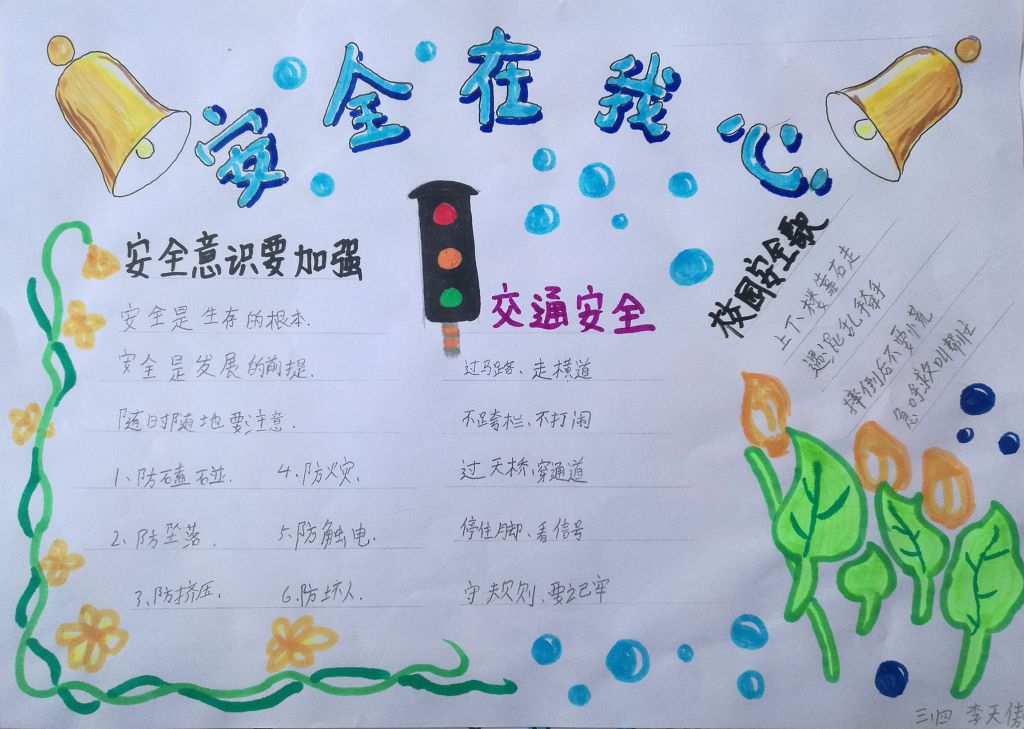 安全在我心
安全意识要加强
安全是生存的根本.
安全是发展的前提.
随时随地要注意.
1、防磕碰. 4、防火灾.
2、防坠落. 5、防触电.
3、防挤压. 6、防坏人.
交通安全
过马路、走横道
不跨栏、不打闹
过天桥、穿通道
停住脚、看信号
守规则、要记牢
校园安全歌
上下楼靠右走
遇混乱牵手
摔倒后不要慌
急呼救叫帮忙
三·四 李天倩